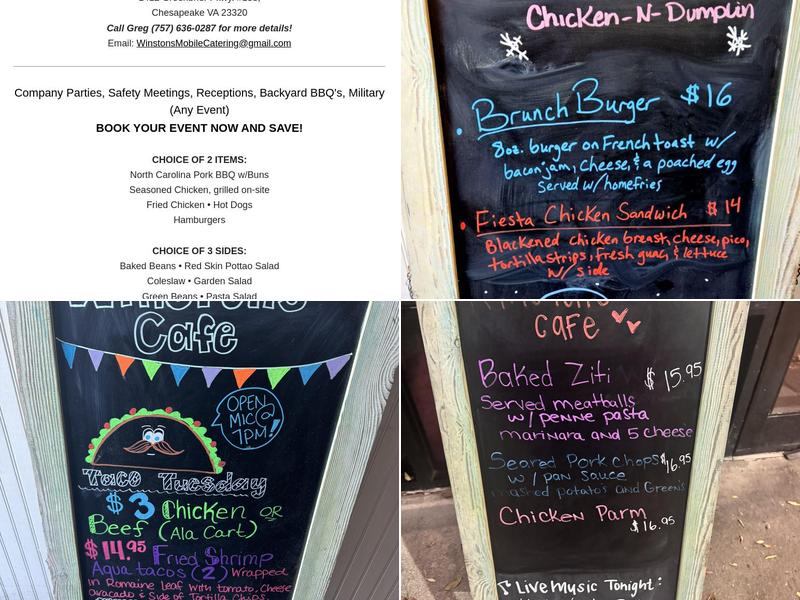 Chesapeake VA 23320
Call Greg (757) 636-0287 for more details!
Email: WinstonsMobileCatering@gmail.com
Company Parties, Safety Meetings, Receptions, Backyard BBQ's, Military
(Any Event)
BOOK YOUR EVENT NOW AND SAVE!
CHOICE OF 2 ITEMS:
North Carolina Pork BBQ w/Buns
Seasoned Chicken, grilled on-site
Fried Chicken • Hot Dogs
Hamburgers
CHOICE OF 3 SIDES:
Baked Beans • Red Skin Pottao Salad
Coleslaw • Garden Salad
Green Beans • Pasta Salad
Chicken-N-Dumplin
• Brunch Burger $16
8oz. burger on French toast w/
bacon jam, cheese, & a poached egg
Served w/ homefries
• Fiesta Chicken Sandwich $14
Blackened chicken breast, cheese, pico,
tortilla strips, fresh guac, & lettuce
w/ side
Cafe
OPEN
MIC @
7PM!
Taco Tuesday
$3 Chicken OR
Beef (Ala Cart)
$14.95 Fried Shrimp
Aqua tacos (2) Wrapped
in Romaine Leaf with tomato, Cheese
avocado & Side of Tortilla Chips
CAFE
Baked Ziti $15.95
Served meatballs
w/ penne pasta
marinara and 5 cheese
Seared Pork chops $16.95
w/ pan sauce
mashed potatos and Greens
Chicken Parm
$16.95
Live Music Tonight: